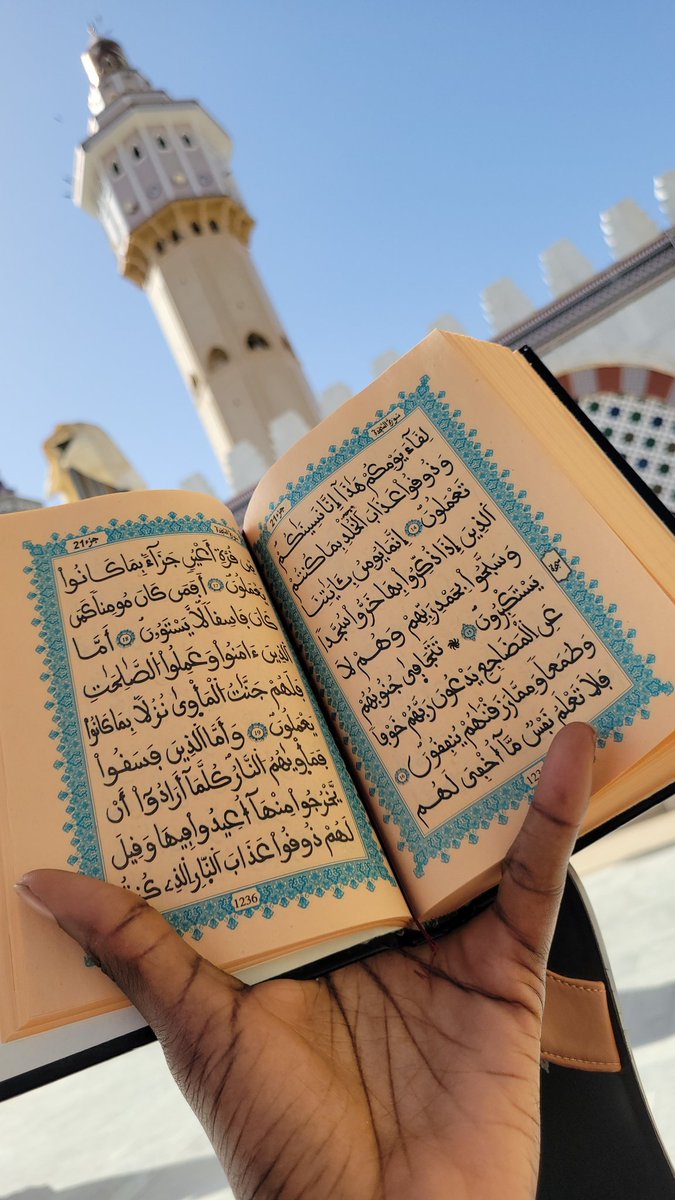 سورة السجدة
جزء 21
لِقَآءَ يَوْمِكُمْ هَٰذَآ إِنَّا نَسِينَٰكُمْ
وَذُوقُوا۟ عَذَابَ ٱلْخُلْدِ بِمَا كُنتُمْ
تَعْمَلُونَ ١٤ إِنَّمَا يُومِنُ بِـَٔايَٰتِنَا
ٱلَّذِينَ إِذَا ذُكِّرُوا۟ بِهَا خَرُّوا۟ سُجَّدًا
وَسَبَّحُوا۟ بِحَمْدِ رَبِّهِمْ وَهُمْ لَا
يَسْتَكْبِرُونَ ١٥ تَتَجَافَىٰ جُنُوبُهُمْ
عَنِ ٱلْمَضَاجِعِ يَدْعُونَ رَبَّهُمْ خَوْفًا
وَطَمَعًا وَمِمَّا رَزَقْنَٰهُمْ يُنفِقُونَ ١٦
فَلَا تَعْلَمُ نَفْسٌ مَّآ أُخْفِيَ لَهُم
جزء 21
مِّن قُرَّةِ أَعْيُنٍ جَزَآءً بِمَا كَانُوا۟
يَعْمَلُونَ ١٧ أَفَمَن كَانَ مُومِنًا كَمَن
كَانَ فَاسِقًا لَّا يَسْتَوُۥنَ ١٨ أَمَّا
ٱلَّذِينَ ءَامَنُوا۟ وَعَمِلُوا۟ ٱلصَّٰلِحَٰتِ
فَلَهُمْ جَنَّٰتُ ٱلْمَأْوَىٰ نُزُلًا بِمَا كَانُوا۟
يَعْمَلُونَ ١٩ وَأَمَّا ٱلَّذِينَ فَسَقُوا۟
فَمَأْوَىٰهُمُ ٱلنَّارُ كُلَّمَآ أَرَادُوٓا۟ أَن
يَّخْرُجُوا۟ مِنْهَآ أُعِيدُوا۟ فِيهَا وَقِيلَ
لَهُمْ ذُوقُوا۟ عَذَابَ ٱلنَّارِ ٱلَّذِي
1236